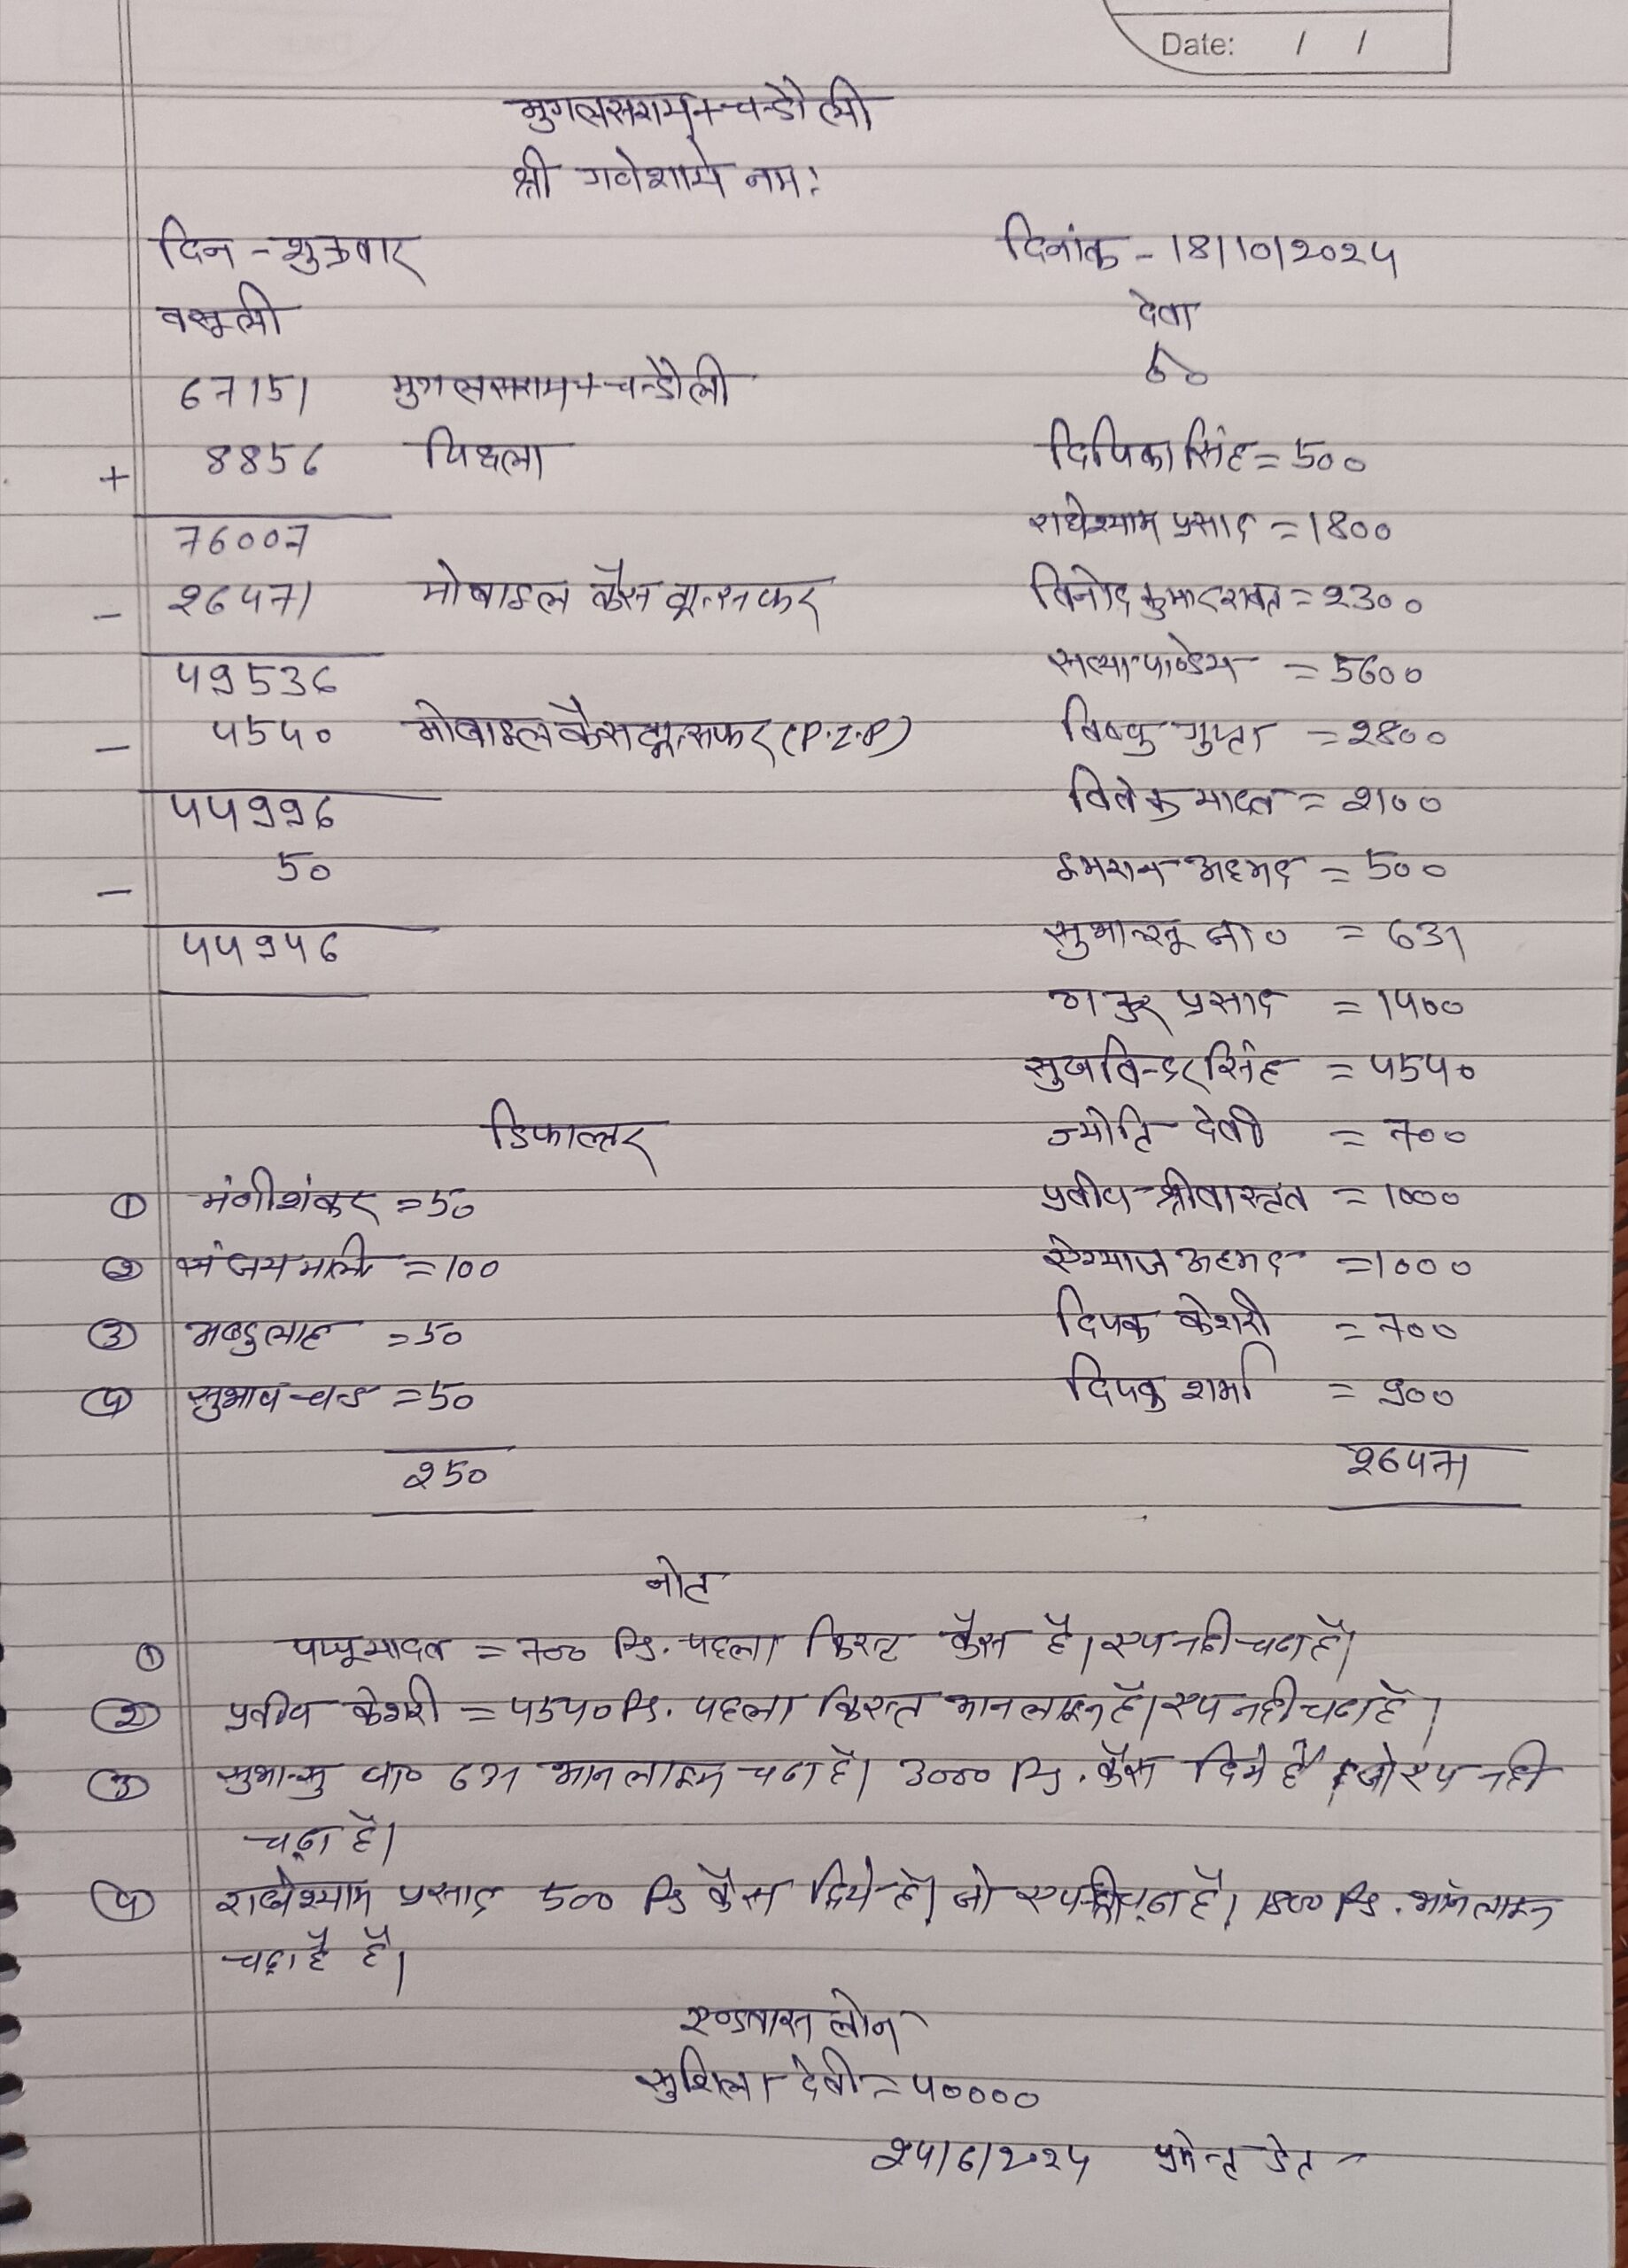 Date: / /
मुगलसराय + चन्दौली
श्री गणेशाये नमः
दिन - शुक्रवार दिनांक - 18/10/2024
वसूली देवा
67151 मुगलसराय + चन्दौली
+ 8856 पिछला दिपिका सिंह = 500
76007 राधेश्याम प्रसाद = 1800
- 26471 मोबाइल कैस ट्रान्सफर विनोद कुमार रावत = 2300
49536 सत्या पाण्डेय = 5600
- 4540 मोबाइल कैस ट्रान्सफर (P.Z.P) विष्णु गुप्ता = 2800
44996 विवेक यादव = 2100
- 50 इमरान अहमद = 500
44946 सुभान्सू ना० = 631
ठाकुर प्रसाद = 1400
सुखविन्दर सिंह = 4540
डिफाल्टर ज्योति देवी = 700
① मंगीशंकर = 50 प्रवीण श्रीवास्तव = 1000
② संजय माली = 100 अहमद = 1000
③ अब्दुलाह = 50 दिपक केशरी = 700
④ सुभाष चन्द = 50 दिपक शर्मा = 900
250 26471
नोट
① पप्पू यादव = 700 Rs. पहला किस्ट कैस है। एप नही चढा है।
② प्रवीण केशरी = 4540 Rs. पहला किस्त आनलाइन है। एप नही चढा है।
③ सुभान्सु पा० 631 आनलाइन चढा है। 3000 Rs. कैस दिये है जो एप नही
चढ़ा है।
④ राधेश्याम प्रसाद 500 Rs कैस दिये है। जो एप नही चढ़ा है। 1800 Rs. आनलाइन
चढ़ा है है।
एण्डवास लोन
सुशिला देवी = 40000
24/6/2024 प्रमेन्ट डेट